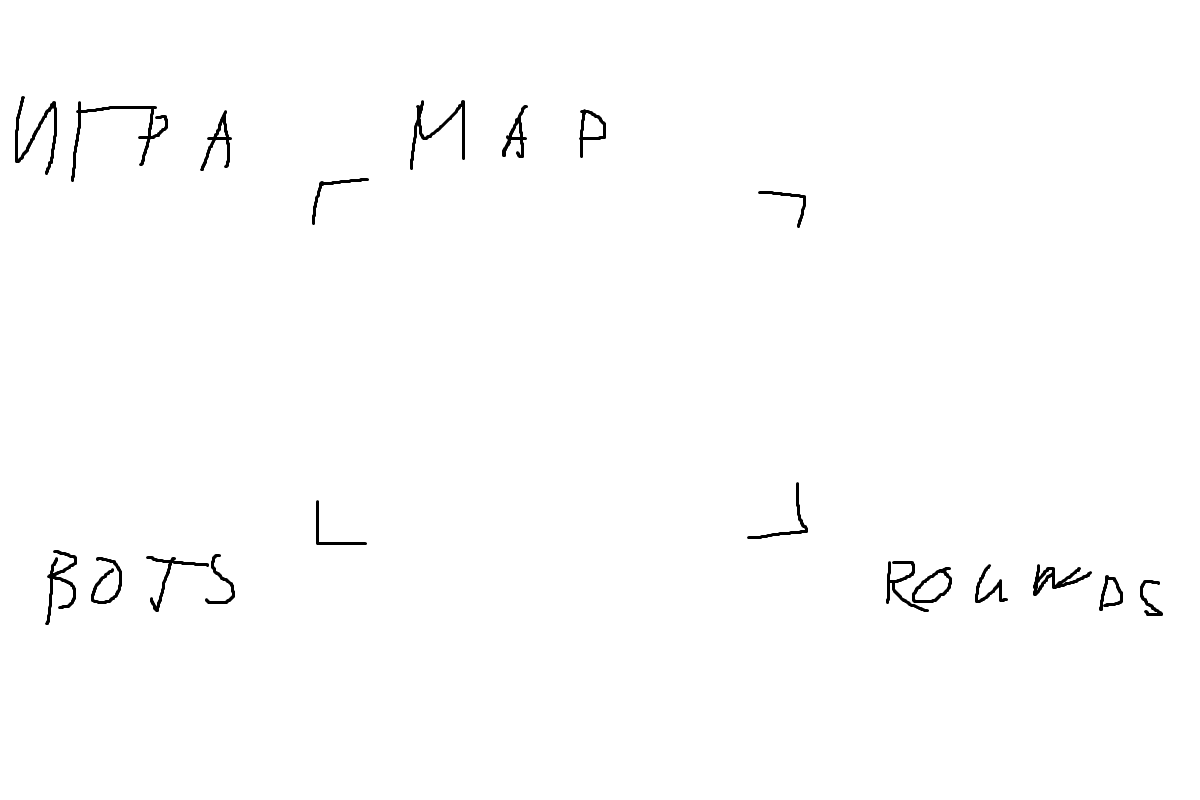 ИГРА MAP
BOTS ROUNDS